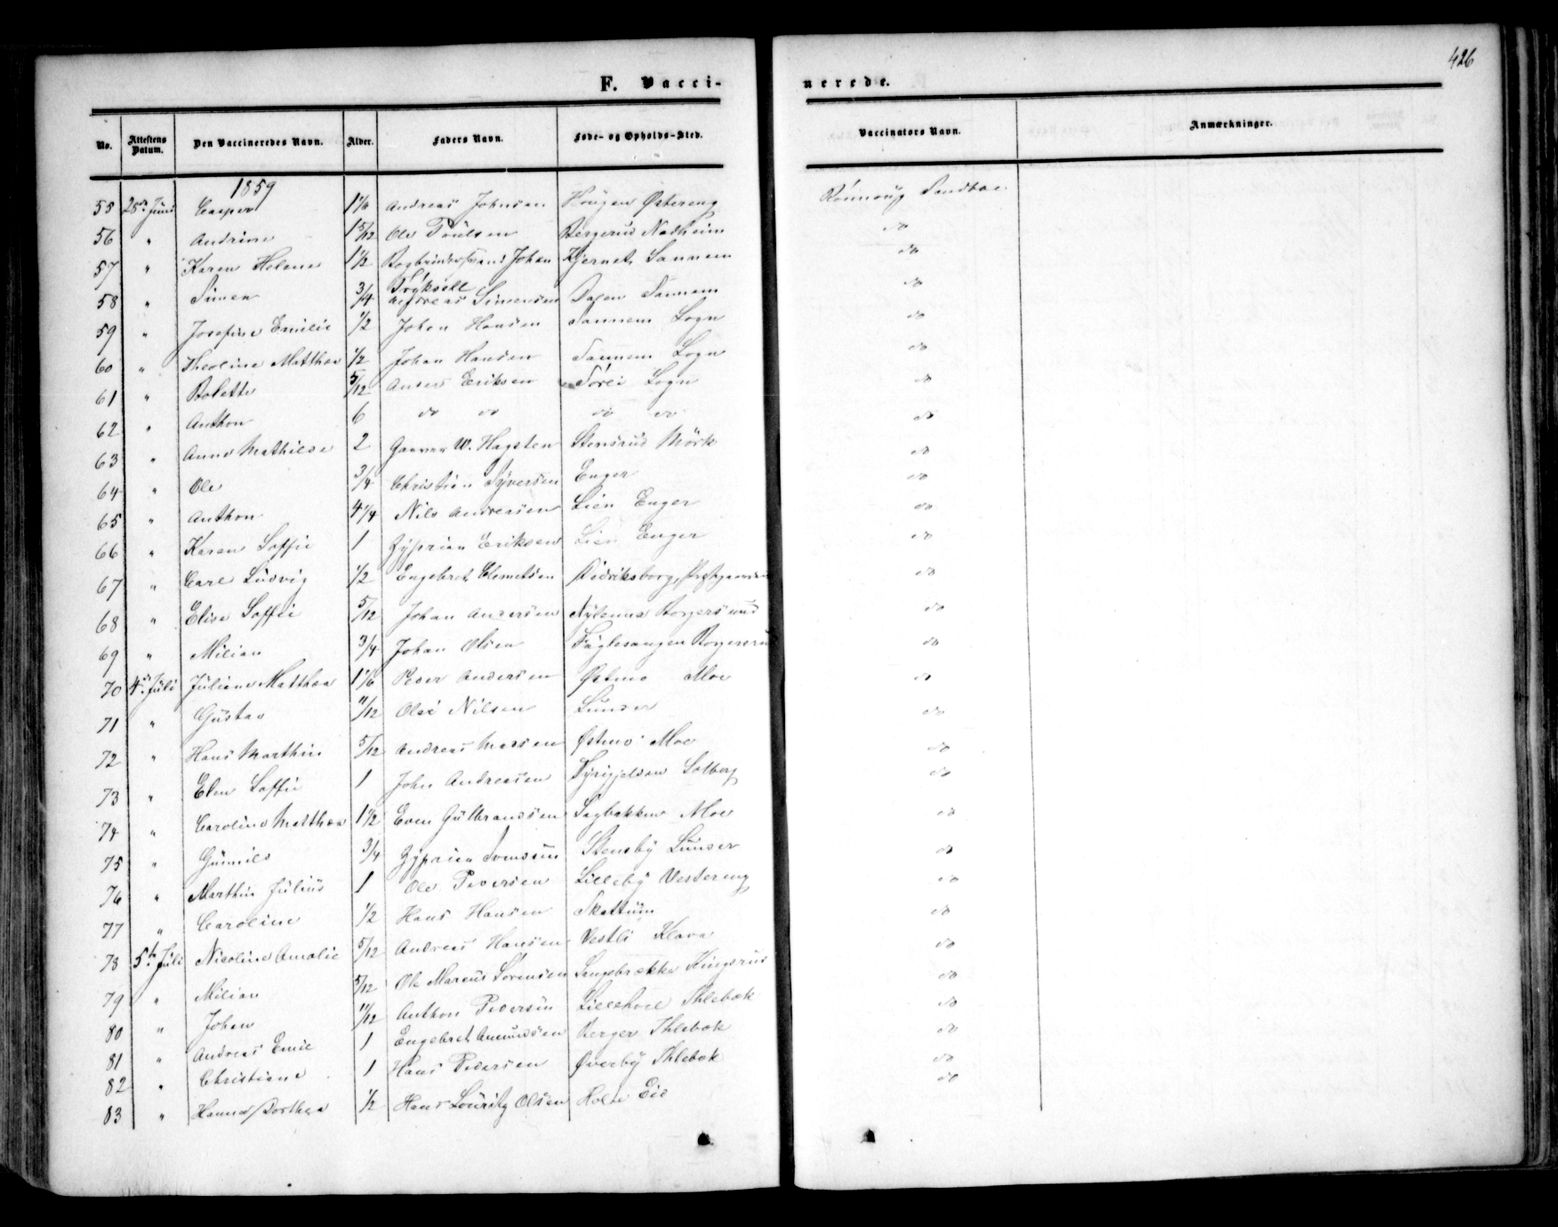 426
F. Vacci-nerede.
No. Attestens Datum. Den Vaccineredes Navn. Alder. Faders Navn. Føde- og Opholds-Sted. Vaccinators Navn. Anmærkninger.
1859
55 25de Juni Casper 1 Andreas Johnsen Hougen Østereng Rönnaug Sandboe
56 " Andrine 1 5/12 Ole Poulsen Bergerud Nadheim do
57 " Karen Helene 1 1/2 Johan Hjernet Sannem do
58 " Simen 3/4 Andreas Simensen Dagen Sannem do
59 " Josefine Emilie 1/2 Johan Hansen Sannem Sogn do
60 " Theoline Matthea 1/2 Johan Hansen Sannem Sogn do
61 " Bolette 5/12 Anders Eriksen Sogn do
62 " Anthon 6 do do do do do
63 " Anne Mathilde 2 Gunner W. Hagsten Stensrud Mörk do
64 " Ole 3/4 Christian Syversen Enger do
65 " Anthon 4 1/4 Nils Andreasen Lien Enger do
66 " Karen Soffie 1 Zyprian Eriksen Lien Enger do
67 " Carl Ludvig 1/2 Engebret Clemetsen Didriksborg, do
68 " Elise Soffie 5/12 Johan Andersen Nylænne Borgersund do
69 " Milian 3/4 Johan Olsen Fuglesangen do
70 4de Juli Juliane Matthea 1 1/6 Peder Andersen Østmo Moe do
71 " Gustav 11/12 Ole Nilsen Lunder do
72 " Hans Marthin 5/12 Andreas Madsen Østmo Moe do
73 " Elen Soffie 1 John Andreasen Solberg do
74 " Caroline Matthea 1 1/2 Even Gulbrandsen Sagbakken Moe do
75 " Gunnild 3/4 Zyprian Svendsen Stensby Lunder do
76 " Marthin Julius 1 Ole Pedersen Lilleby Vestereng do
77 " Caroline 1/2 Hans Hansen Skattum do
78 5te Juli Nicoline Amalie 5/12 Andreas Hansen Vestli Klava do
79 " Milian 5/12 Ole Marcus Sörensen Langebrække Kingsrud do
80 " Johan 11/12 Anthon Pedersen Lillehoel Thlebæk do
81 " Andreas Emil 1 Engebret Amundsen Berger Thlebæk do
82 " Christiane 1 Hans Pedersen Øverby Thlebæk do
83 " Hanna Dorthea 1/2 Hans Louritz Olsen Eie do